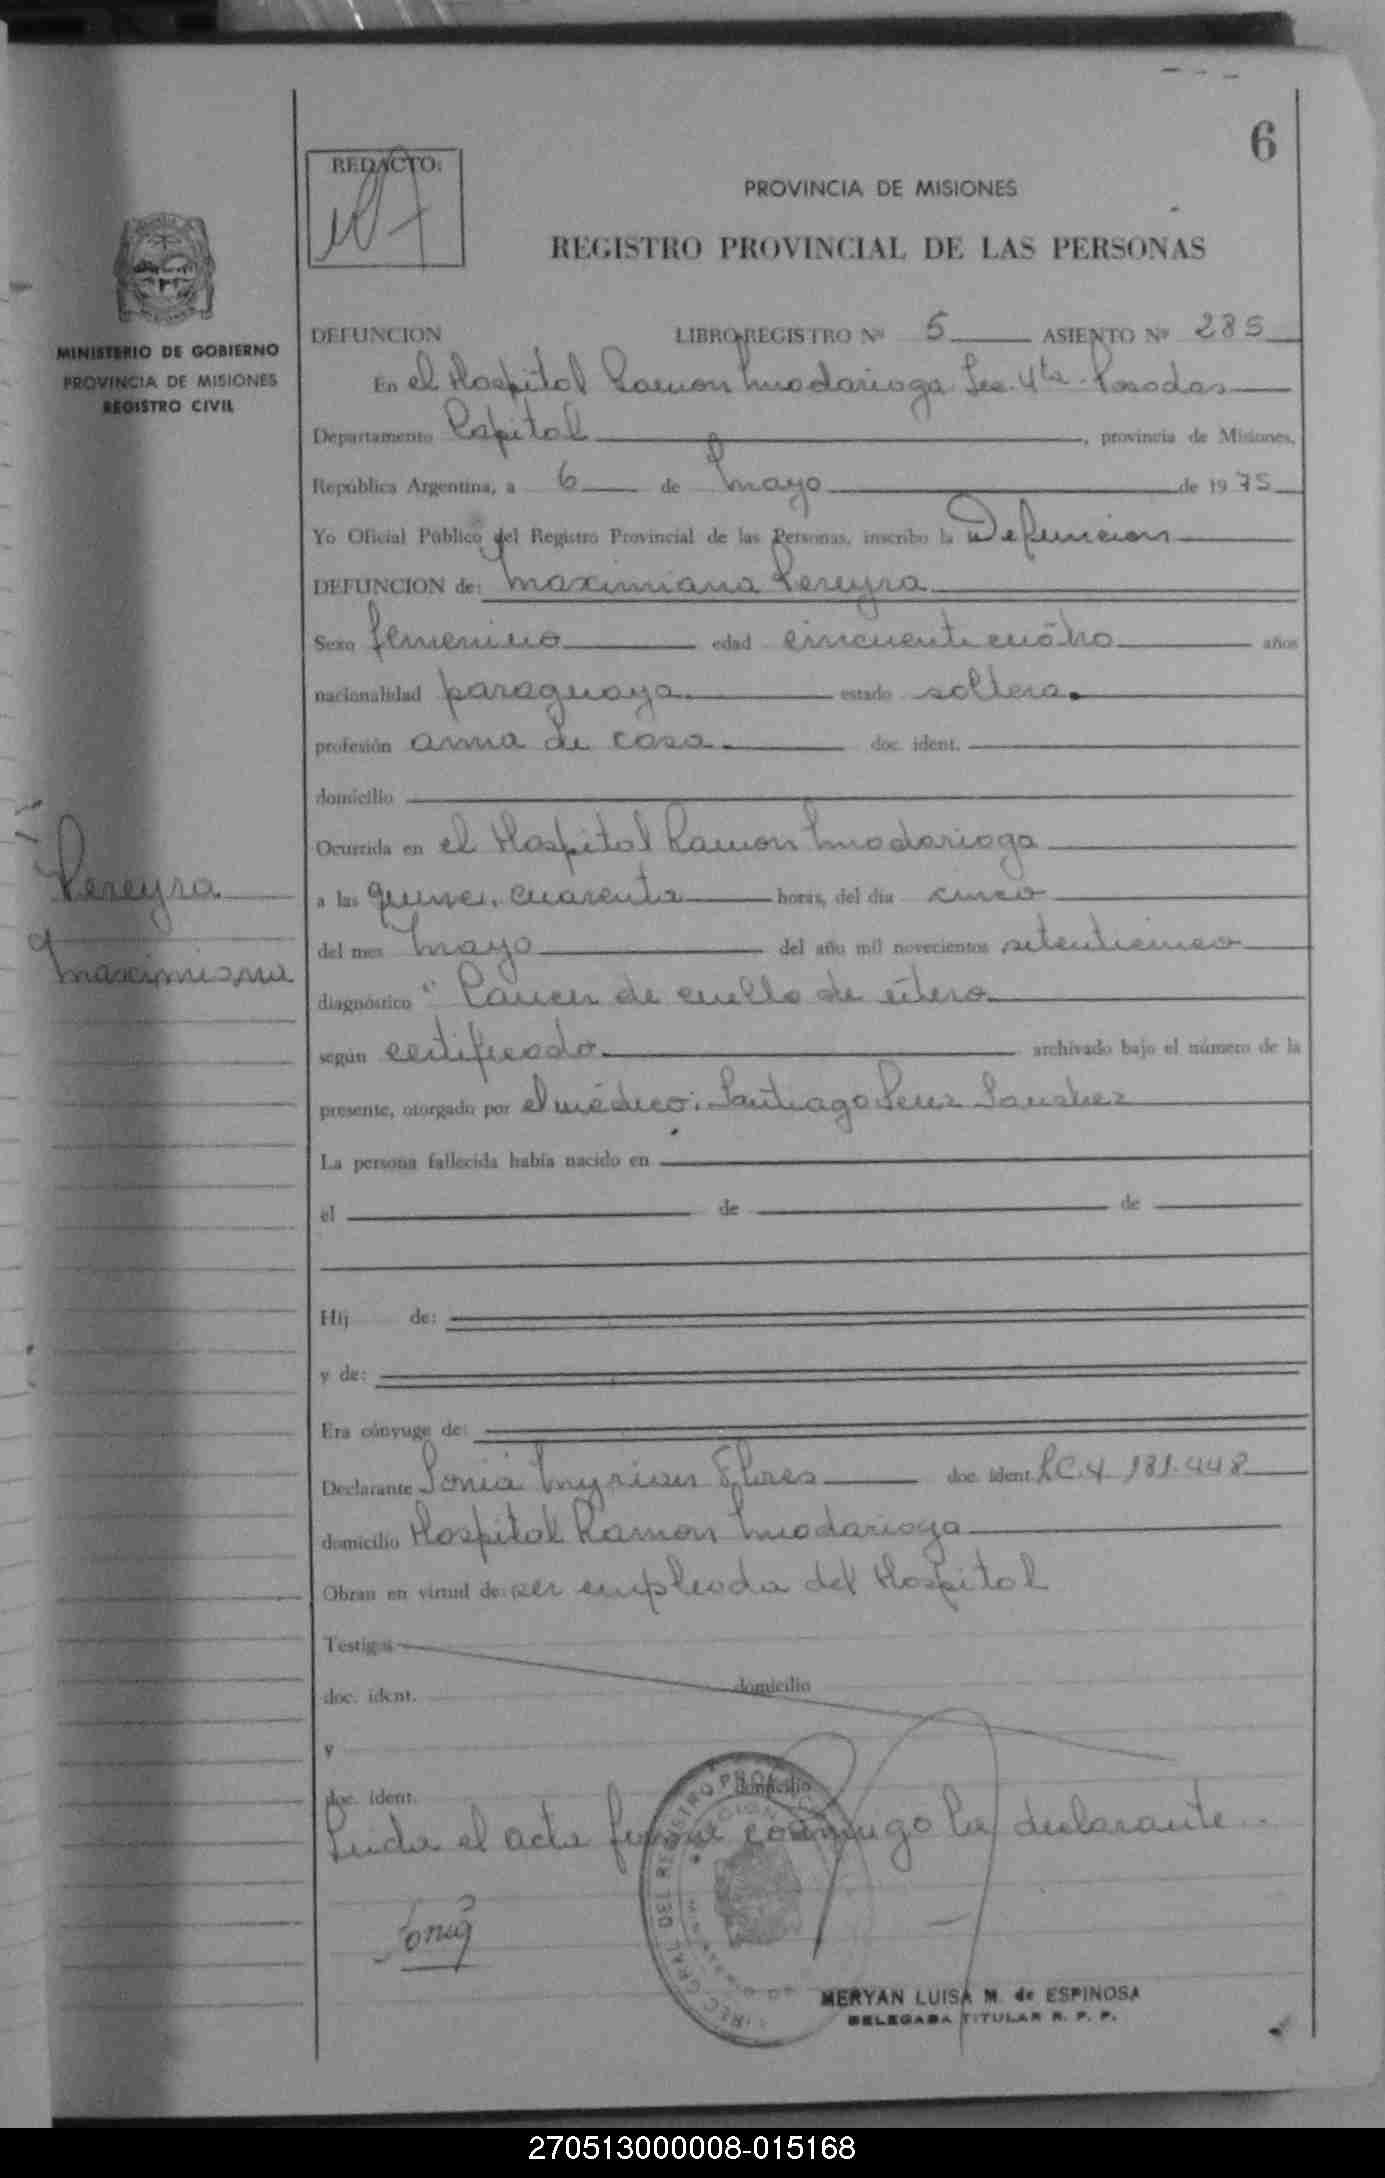 6
REDACTO:
PROVINCIA DE MISIONES
REGISTRO PROVINCIAL DE LAS PERSONAS
MINISTERIO DE GOBIERNO
PROVINCIA DE MISIONES
REGISTRO CIVIL
DEFUNCION LIBRO-REGISTRO Nº 5 ASIENTO Nº 285
En el Hospital Ramon Madariaga Sec. 4ta. Posadas
Departamento Capital, provincia de Misiones,
República Argentina, a 6 de Mayo de 1975
Yo Oficial Público del Registro Provincial de las Personas, inscribo la Defuncion
DEFUNCION de: Maximiana Pereyra
Sexo femenino edad cincuenticuatro años
nacionalidad paraguaya estado soltera.
profesión ama de casa. doc. ident.
domicilio
Ocurrida en el Hospital Ramon Madariaga
Pereyra
Maximiana
a las quince, cuarenta horas, del día cinco
del mes Mayo del año mil novecientos setenticinco
diagnóstico " Cancer de cuello de útero
según certificado. archivado bajo el número de la
presente, otorgado por el médico: Santiago Perez Sanchez
La persona fallecida había nacido en
el de de
Hij de:
y de:
Era cónyuge de:
Declarante Sonia Myrian Flores doc. ident. L.C. 4.181.448
domicilio Hospital Ramon Madariaga
Obran en virtud de: ser empleada del Hospital
Testigos
doc. ident. domicilio
y
doc. ident. domicilio
Leida el acta firma conmigo la declarante.
Sonia
MERYAN LUISA M. de ESPINOSA
DELEGADA TITULAR R. P. P.
270513000008-015168